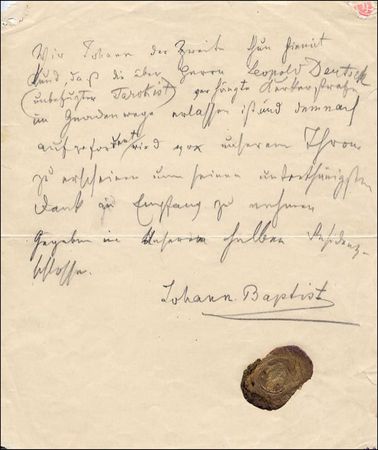 Wir Johann der Zweite thun hiemit
kund daß die über Herrn Leopold Deutsch
(unbefugter Tarokist) verhängte Kerkerstrafe
im Gnadenwege erlassen ist und demnach
aufgefordert wird vor unserem Thron
zu erscheinen um seinen unterthänigsten
Dank zu Empfang zu nehmen
Gegeben in Unserem halben Residenz-
schlosse.
Johann Baptist